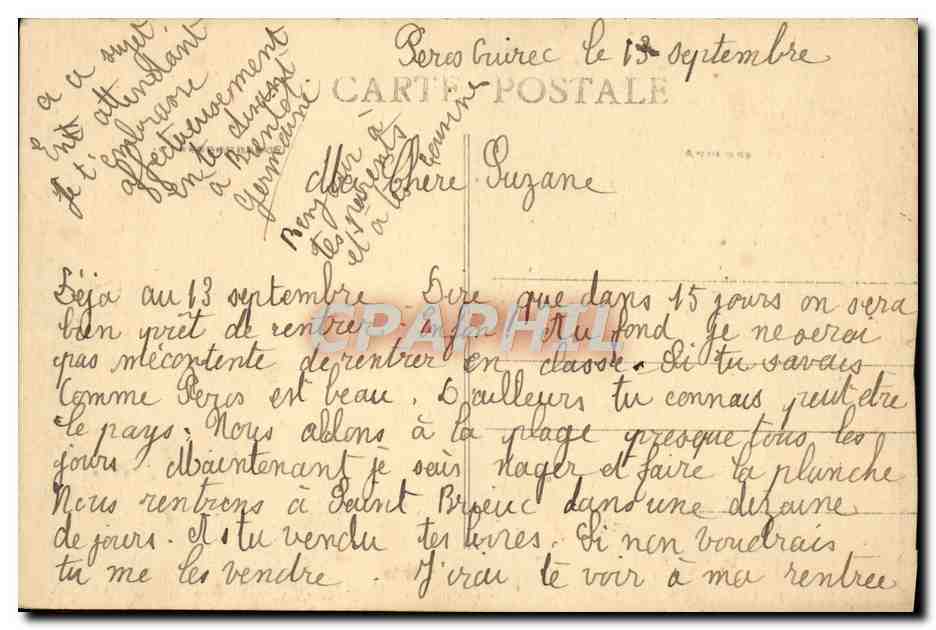 Peros Guirec le 13 septembre
CARTE POSTALE
Ma Chère Suzane
Déjà au 13 septembre. Dire que dans 15 jours on sera
bien prêt de rentrer. Enfin! et au fond je ne serai
pas mécontente de rentrer en classe. Si tu savais
comme Peros est beau. D'ailleurs tu connais peut être
le pays. Nous allons à la plage presque tous les
jours. Maintenant je sais nager et faire la planche
Nous rentrons à Saint Brieuc dans une dizaine
de jours. As tu vendu tes livres. Si non voudrais
tu me les vendre. J'irai te voir à ma rentrée
à ce sujet
En attendant
je t'embrasse
affectueusement
en te disant
à Bientôt
Germaine
Bonjour à
tes parents
et à Jeannine
CPAPHIL